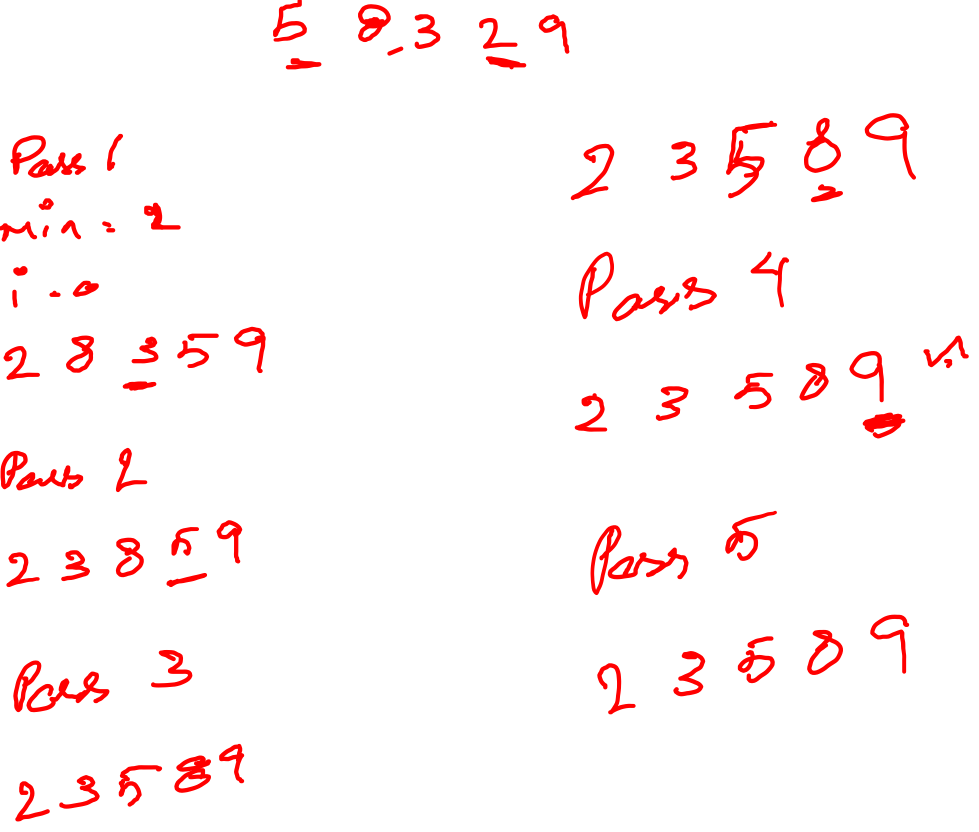 5 8 3 2 9
Pass 1
min = 2
i = 0
2 8 3 5 9
Pass 2
2 3 8 5 9
Pass 3
2 3 5 8 9
2 3 5 8 9
Pass 4
2 3 5 8 9
Pass 5
2 3 5 8 9